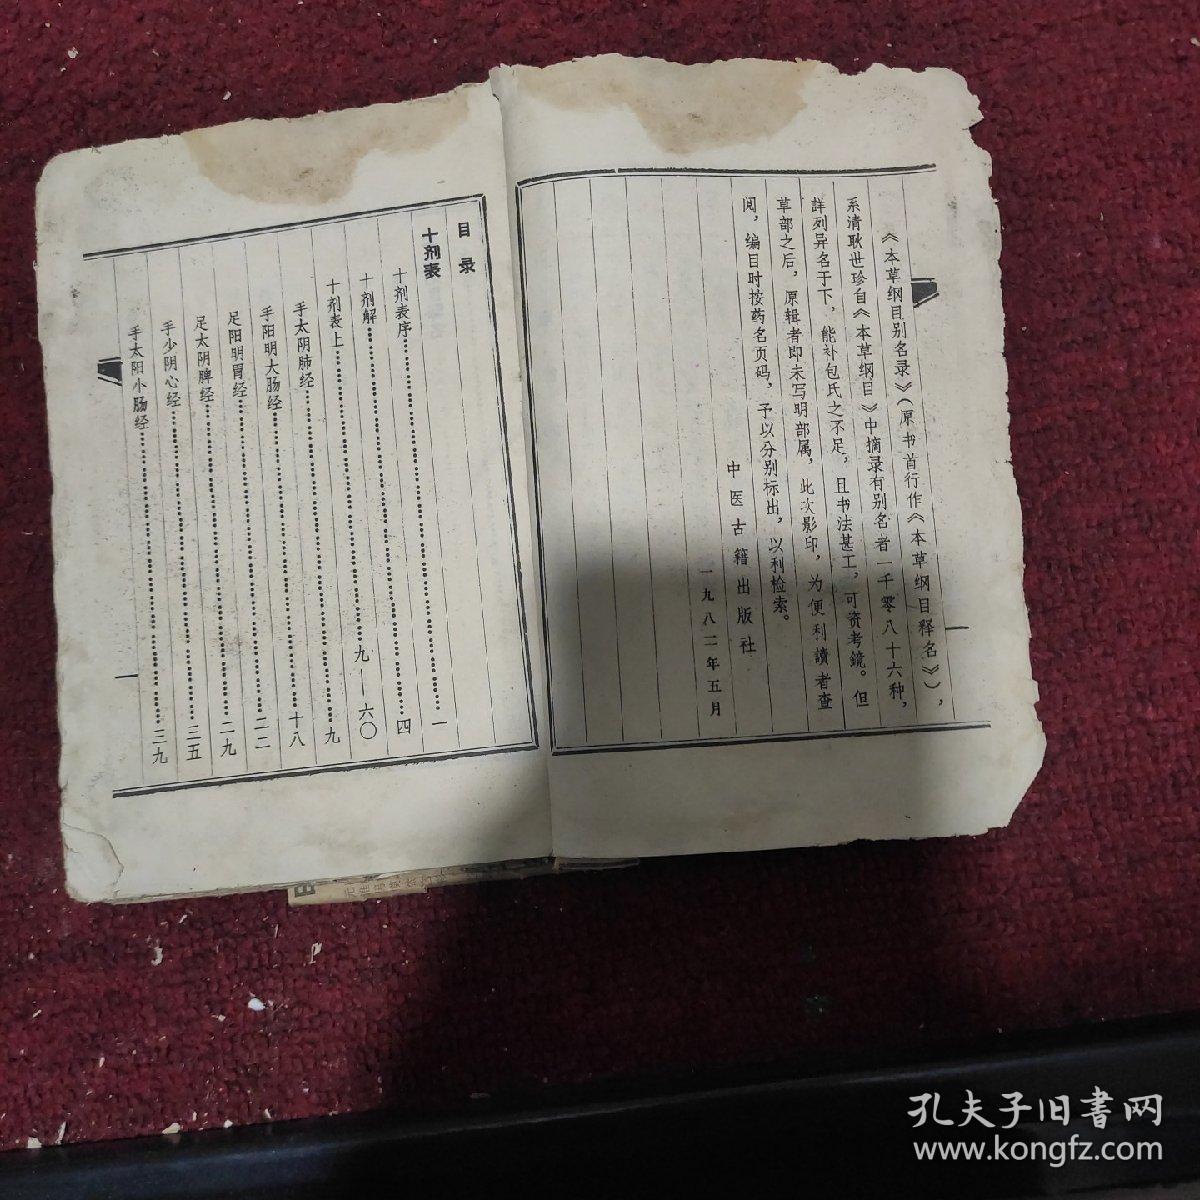 《本草纲目别名录》（原书首行作《本草纲目释名》），
系清耿世珍自《本草纲目》中摘录有别名者一千零八十六种，
詳列异名于下，能补包氏之不足，且书法甚工，可资考鏡。但
草部之后，原辑者即未写明部属，此次影印，为便利讀者查
阅，编目时按药名页码，予以分别标出，以利检索。
中医古籍出版社
一九八二年五月
目录
十剂表
十剂表序……一
十剂解……四
十剂表上……九—六〇
手太阴肺经……九
手阳明大肠经……十八
足阳明胃经……二二
足太阴脾经……二九
手少阴心经……三五
手太阳小肠经……三九
孔夫子旧書网
www.kongfz.com